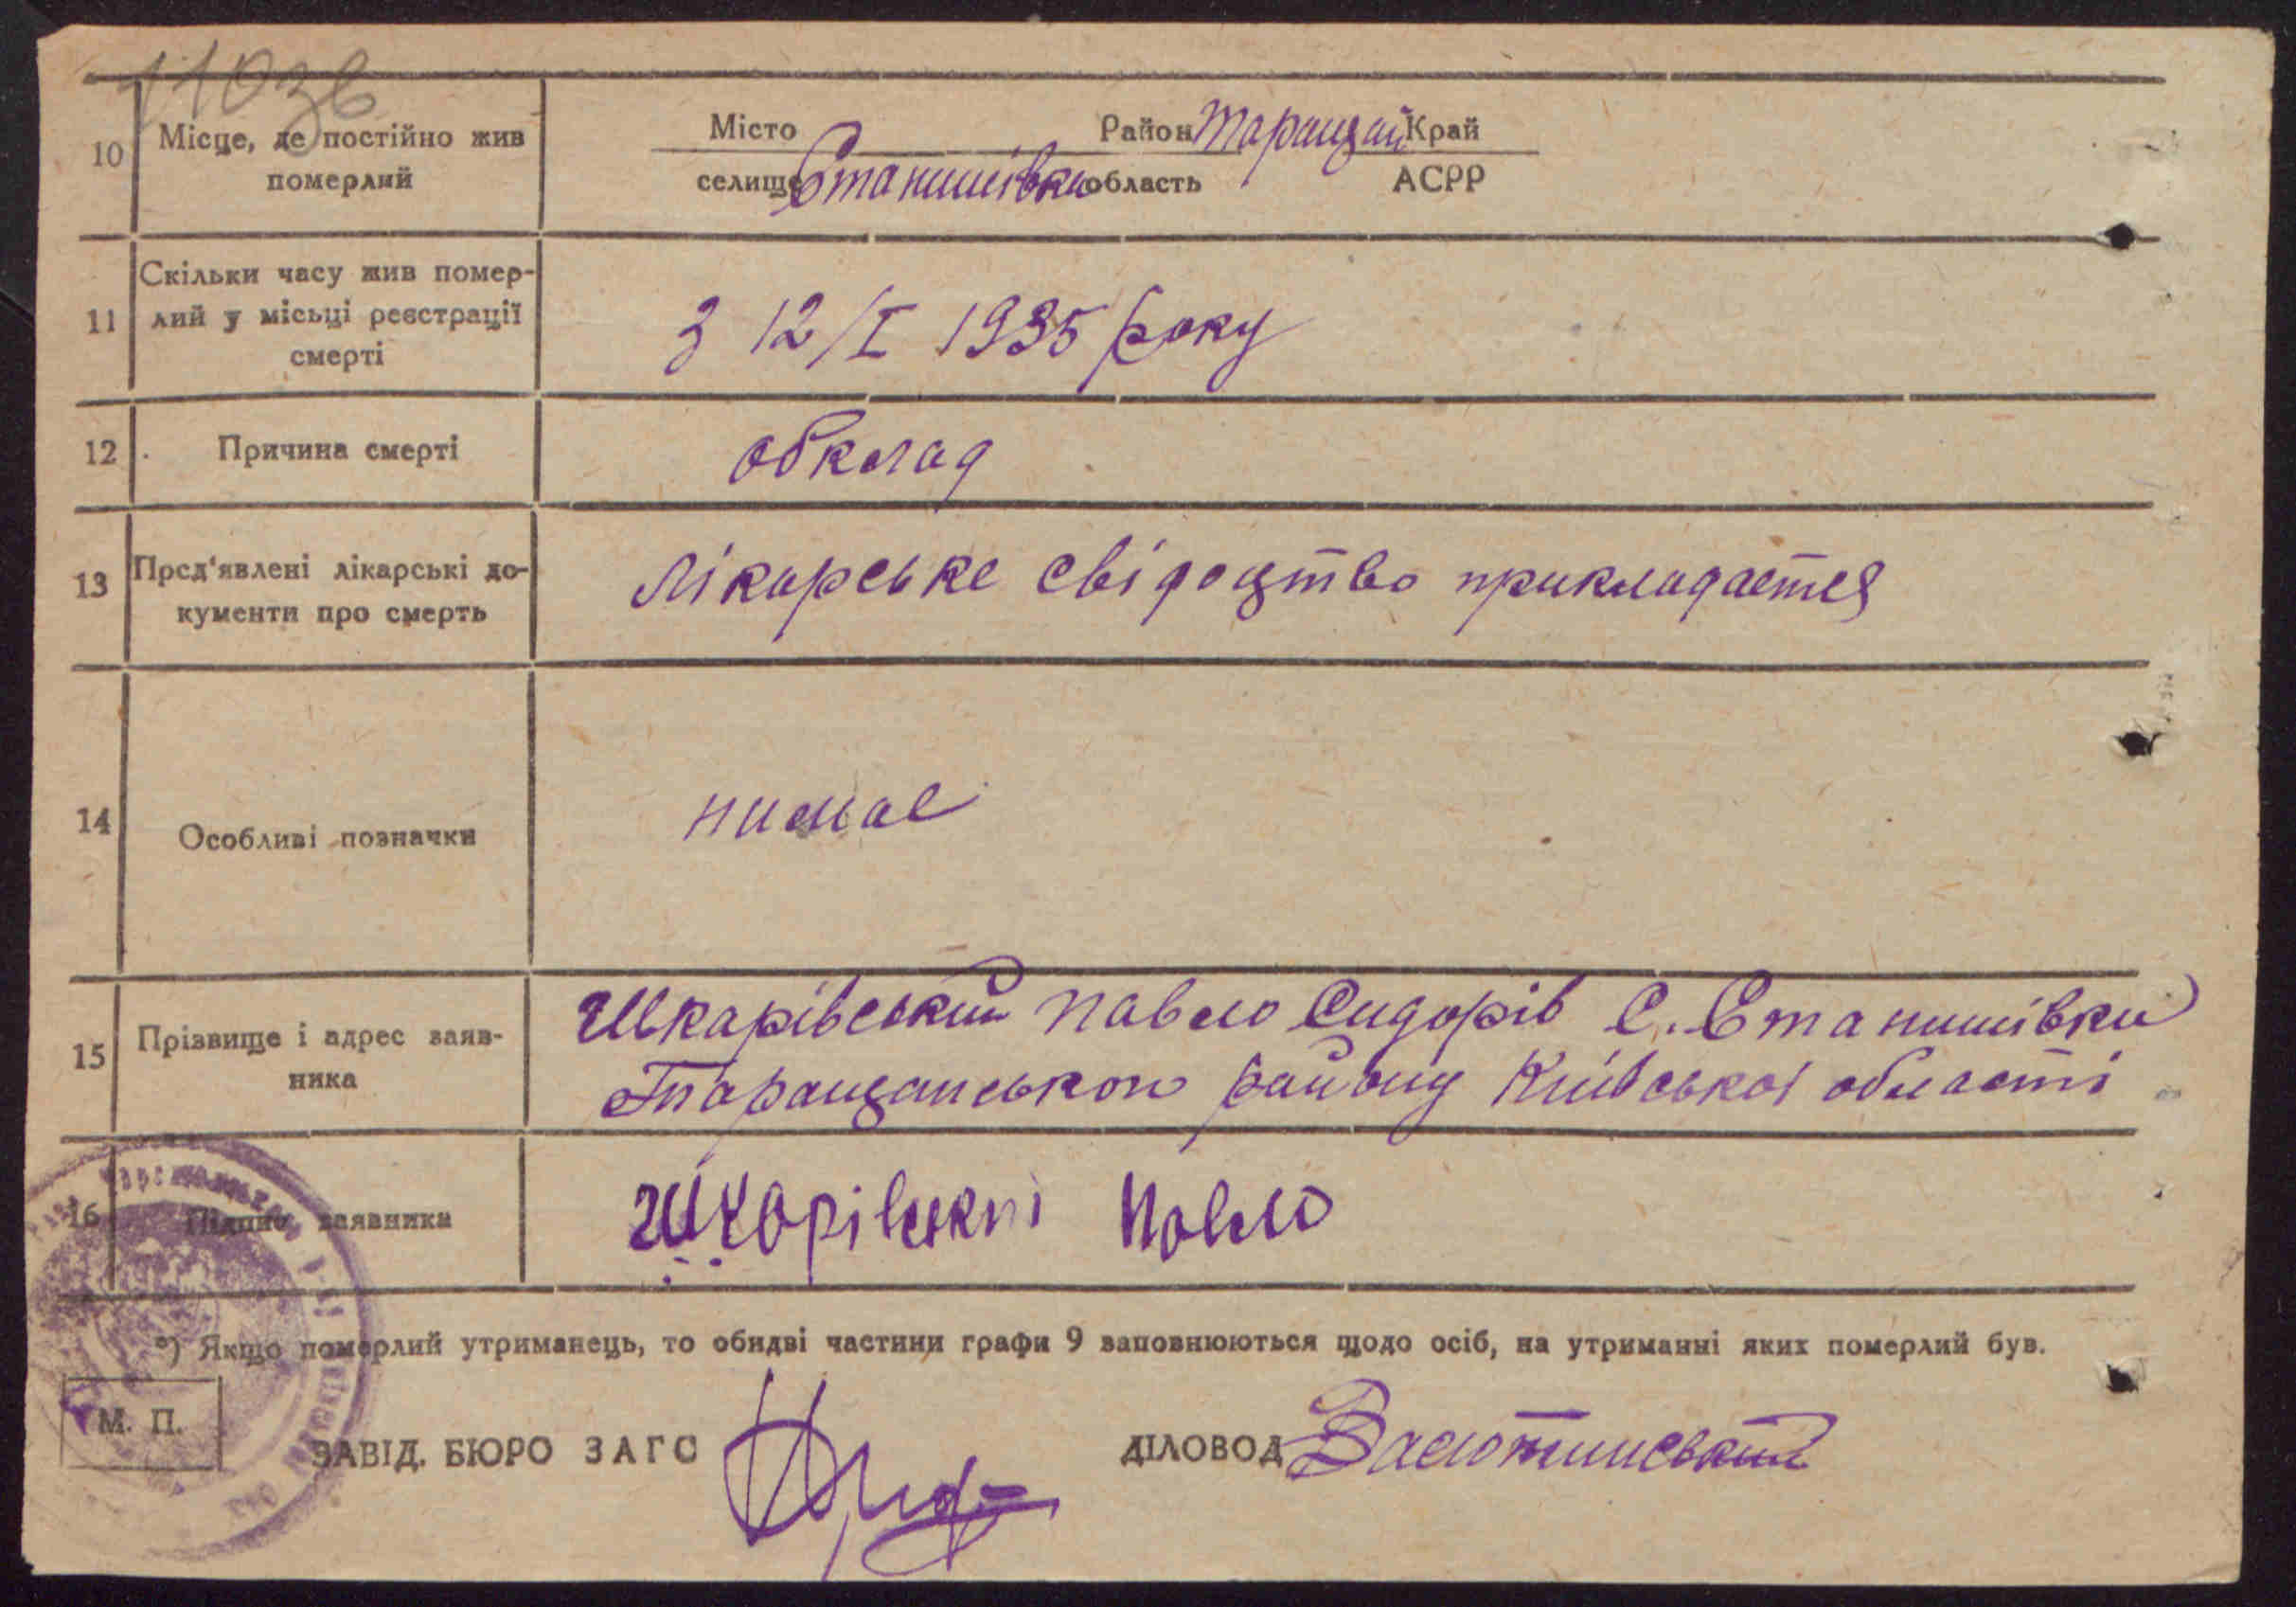 11036
10 Місце, де постійно жив
померлий
Місто Район Таращан Край
селище Станишівка область АСРР
11 Скільки часу жив помер-
лий у місьці реєстрації
смерті
З 12/I 1935 року
12 Причина смерті
обклад
13 Пред'явлені лікарські до-
кументи про смерть
Лікарське свідоцтво прикладается
14 Особливі позначки
нимає
15 Прізвище і адрес заяв-
ника
Шкарівський Павло Сидорів С. Станишівки
Таращанського району Київської області
16 Підпис заявника
Шкарівський Павло
*) Якщо померлий утриманець, то обидві частини графи 9 заповнюються щодо осіб, на утриманні яких померлий був.
М. П.
ЗАВІД. БЮРО ЗАГС
ДІЛОВОД